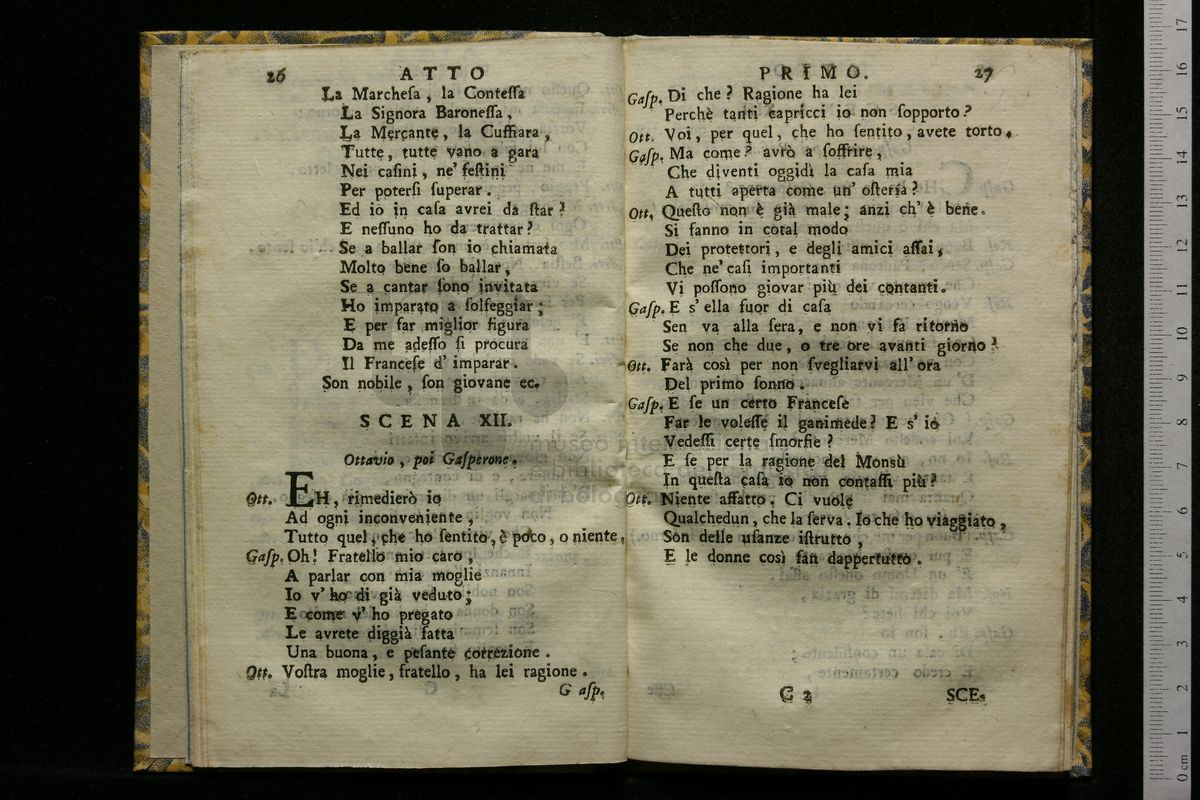 26 ATTO
La Marcheſa, la Conteſſa
La Signora Baroneſſa,
La Mercante, la Cuffiara,
Tutte, tutte vano a gara
Nei caſini, ne' feſtini
Per poterſi ſuperar.
Ed io in caſa avrei da ſtar?
E neſſuno ho da trattar?
Se a ballar ſon io chiamata
Molto bene ſo ballar,
Se a cantar ſono invitata
Ho imparato a ſolfeggiar;
E per far miglior figura
Da me adeſſo ſi procura
Il Franceſe d' imparar.
Son nobile, ſon giovane ec.
SCENA XII.
Ottavio, poi Gaſperone.
Ott. EH, rimedierò io
Ad ogni inconveniente,
Tutto quel, che ho ſentito, è poco, o niente.
Gaſp. Oh! Fratello mio caro,
A parlar con mia moglie
Io v' ho di già veduto;
E come v' ho pregato
Le avrete diggià fatta
Una buona, e peſante correzione.
Ott. Voſtra moglie, fratello, ha lei ragione.
G aſp.
PRIMO. 27
Gaſp. Di che? Ragione ha lei
Perchè tanti capricci io non ſopporto?
Ott. Voi, per quel, che ho ſentito, avete torto.
Gaſp. Ma come? avrò a ſoffrire,
Che diventi oggidì la caſa mia
A tutti aperta come un' oſteria?
Ott. Queſto non è già male; anzi ch' è bene.
Si fanno in cotal modo
Dei protettori, e degli amici aſſai,
Che ne' caſi importanti
Vi poſſono giovar più dei contanti.
Gaſp. E s' ella fuor di caſa
Sen va alla ſera, e non vi fa ritorno
Se non che due, o tre ore avanti giorno?
Ott. Farà così per non ſvegliarvi all' ora
Del primo ſonno.
Gaſp. E ſe un certo Franceſe
Far le voleſſe il ganimede? E s' io
Vedeſſi certe ſmorfie?
E ſe per la ragione del Monsù
In queſta caſa io non contaſſi più?
Ott. Niente affatto. Ci vuole
Qualchedun, che la ſerva. Io che ho viaggiato,
Son delle uſanze iſtrutto,
E le donne così fan dappertutto.
C 2 SCE.
0 cm 1 2 3 4 5 6 7 8 9 10 11 12 13 14 15 16 17